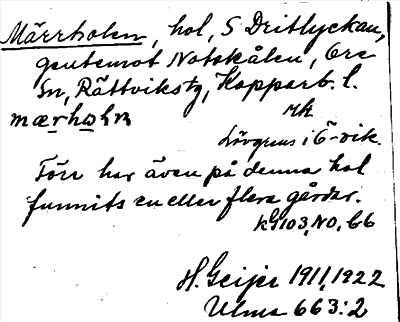 Märrholen, hol, S Dritlyckan,
gentemot Notskålen, Ore
Sn, Rättvikstg, Kopparb. l.
mærholn
Lövgrens i Ö-vik.
Förr har även på denna hol
funnits en eller flera gårdar.
KG103, NO, 66
H. Geijer 1911, 1922
Ulma 663:2